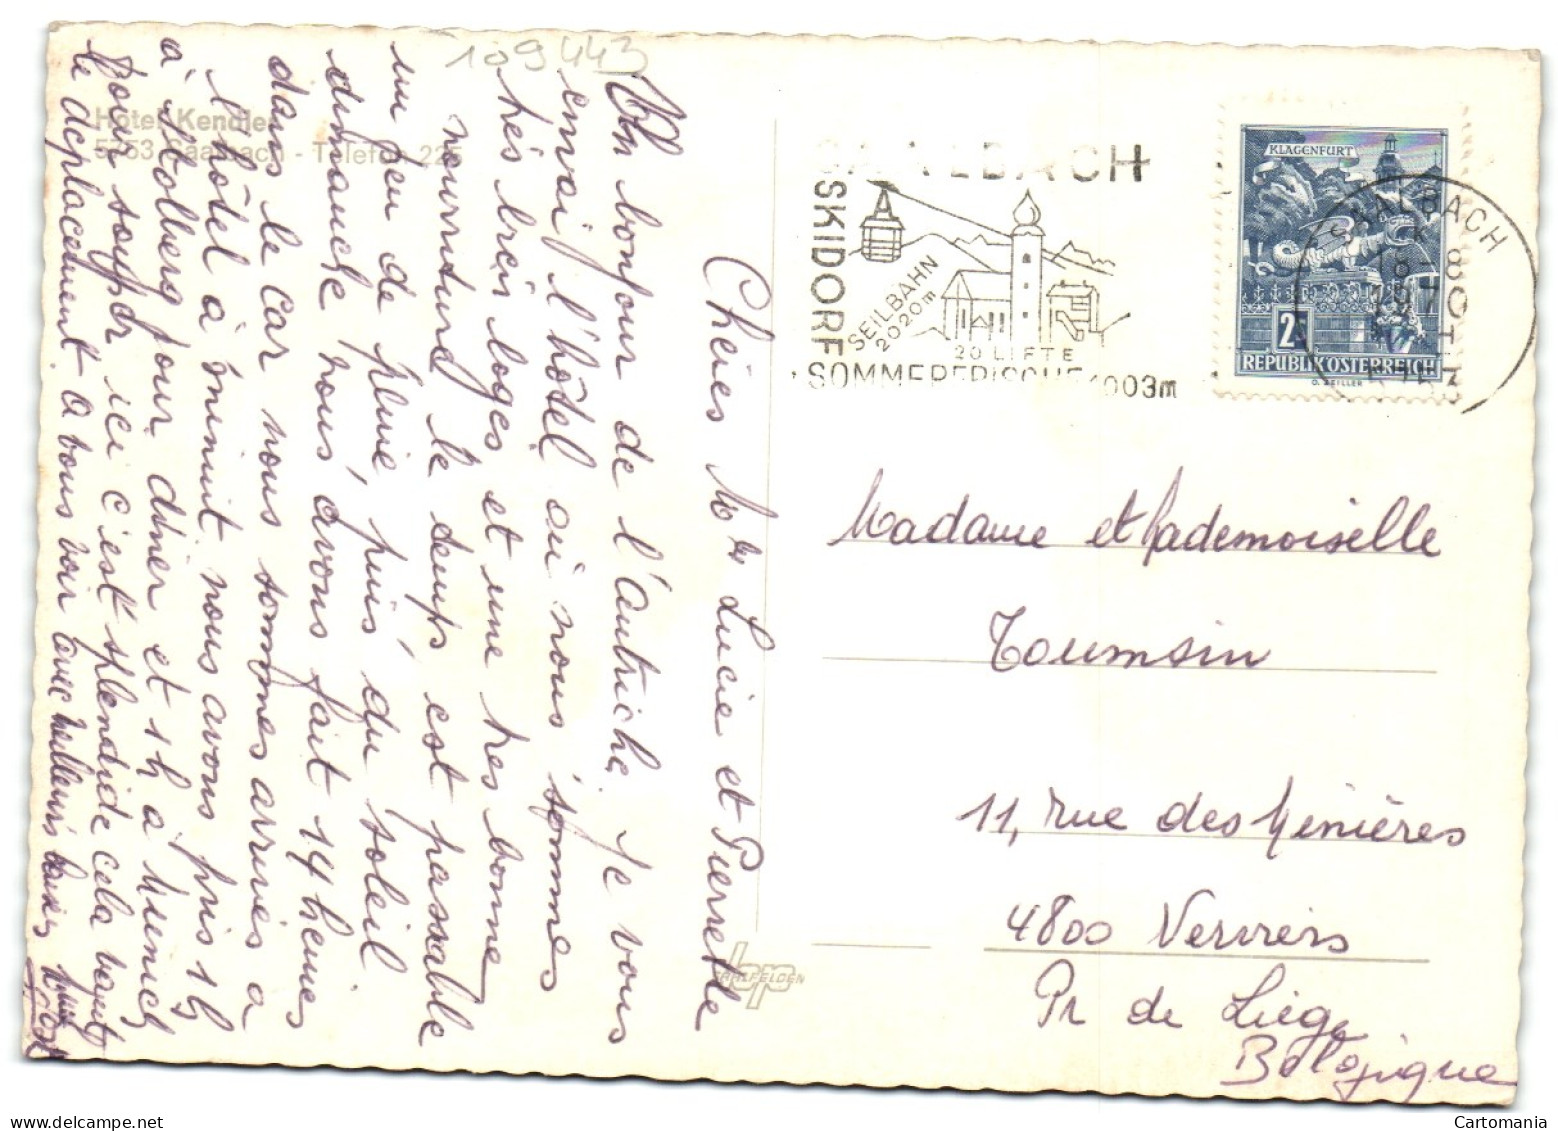 109443
Hotel Kendler
5753 Saalbach - Telefon 225
Chères Mes Lucie et Pierrette
Un bonjour de l'autriche. Je vous
envoi l'hôtel où nous sommes
très bien loges et une tres bonne
nourriture le temps est passable
un peu de pluie, puis du soleil
dimanche nous avons fait 14 heures
dans le car nous sommes arrivés à
l'hôtel à minuit nous avons pris 1h
à Stolberg pour diner et 1h à Munich
pour souper ici c'est splendide cela vaut
le déplacement à vous voir avec meilleurs baisers
SAALBACH
SKIDORF
SEILBAHN
2020m
20 LIFTE
SOMMERFRISCHE 1003m
KLAGENFURT
2
REPUBLIK ÖSTERREICH
O. ZEILLER
SAALBACH
18. 8
1970
5753
Madame et Mademoiselle
Toumsin
11, rue des Minières
4800 Verviers
Pr de Liège
Belgique
bp
SAALFELDEN
Cartomania